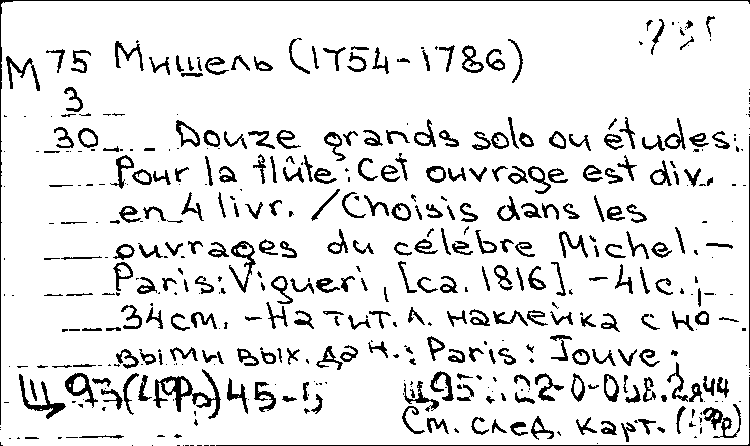 М 75 Мишель (1754-1786)
3
30 Douze grands solo ou études:
Pour la flûte: Cet ouvrage est div.
en 4 livr. / Choisis dans les
ouvrages du célébre Michel. –
Paris: Vigueri, [ca. 1816]. – 41с.;
34см. – На тит. л. наклейка с но-
выми вых. дан.: Paris: Jouve;
Щ93(4Фр)45-5
См. след. карт.